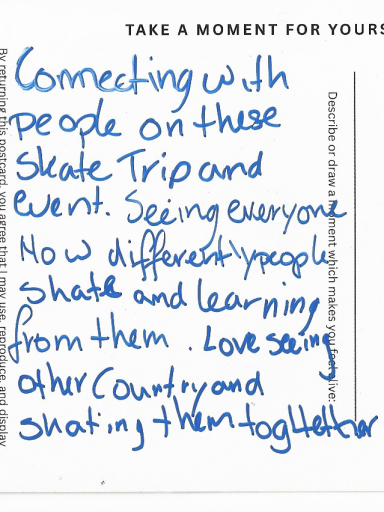 TAKE A MOMENT FOR YOURS
Connecting with
people on these
Skate Trip and
event. Seeing everyone
How differently people
skate and learning
from them. Love seeing
other Country and
skating them togltether
Describe or draw a moment which makes you feel alive:
By returning this postcard, you agree that I may use, reproduce, and display